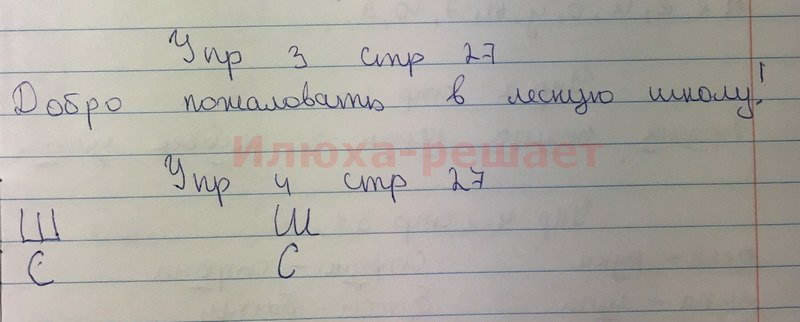 Упр 3 стр 27
Добро пожаловать в лесную школу!
Илюха-решает
Упр 4 стр 27
Ш Ш
С С